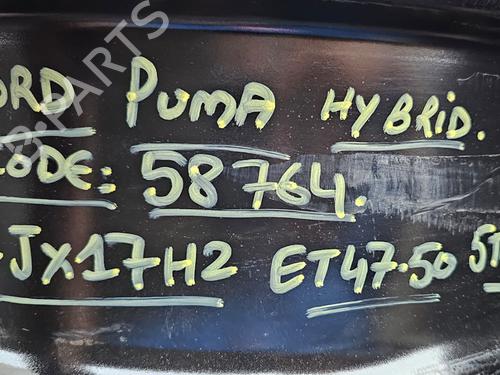 ORD PUMA HYBRID.
CODE: 58764.
JX17H2 ET47.50 5
B-PARTS